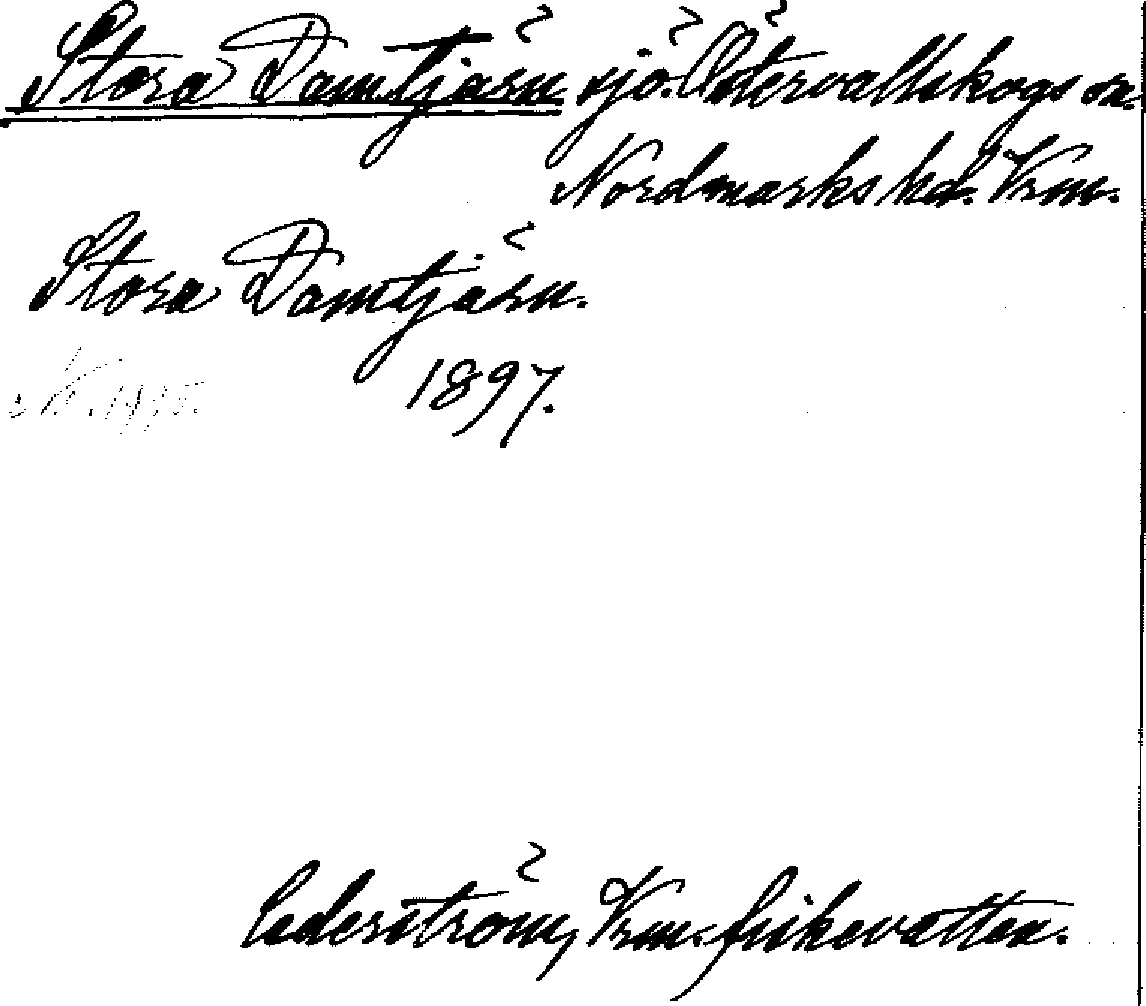 Stora Damtjärn sjö. Östervallskogs sn.
Nordmarks hd. Vrm.
Stora Damtjärn.
1897.
Cederström, Vrm. fiskevatten.